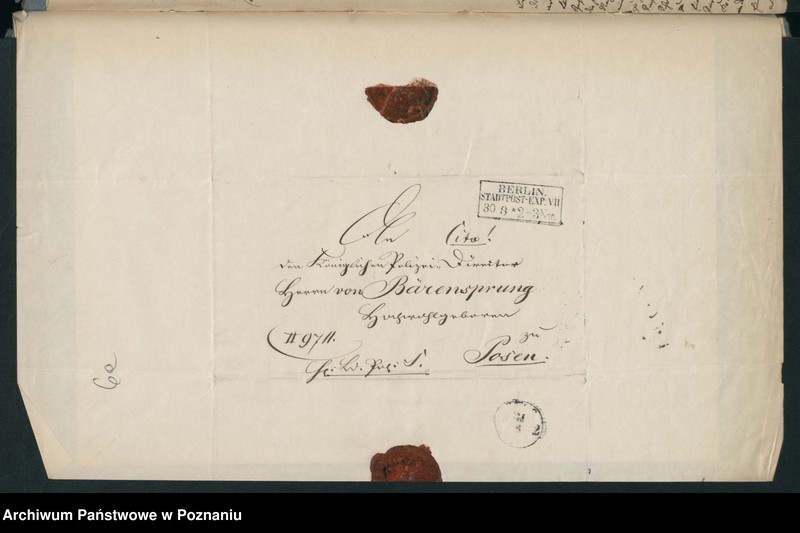 BERLIN.
STADTPOST-EXP: VII
30 8 * 2-3 N
An Cito!
den Königlichen Polizei-Director
Herrn von Bärensprung
Hochwohlgeboren
zu
Posen.
Archiwum Państwowe w Poznaniu